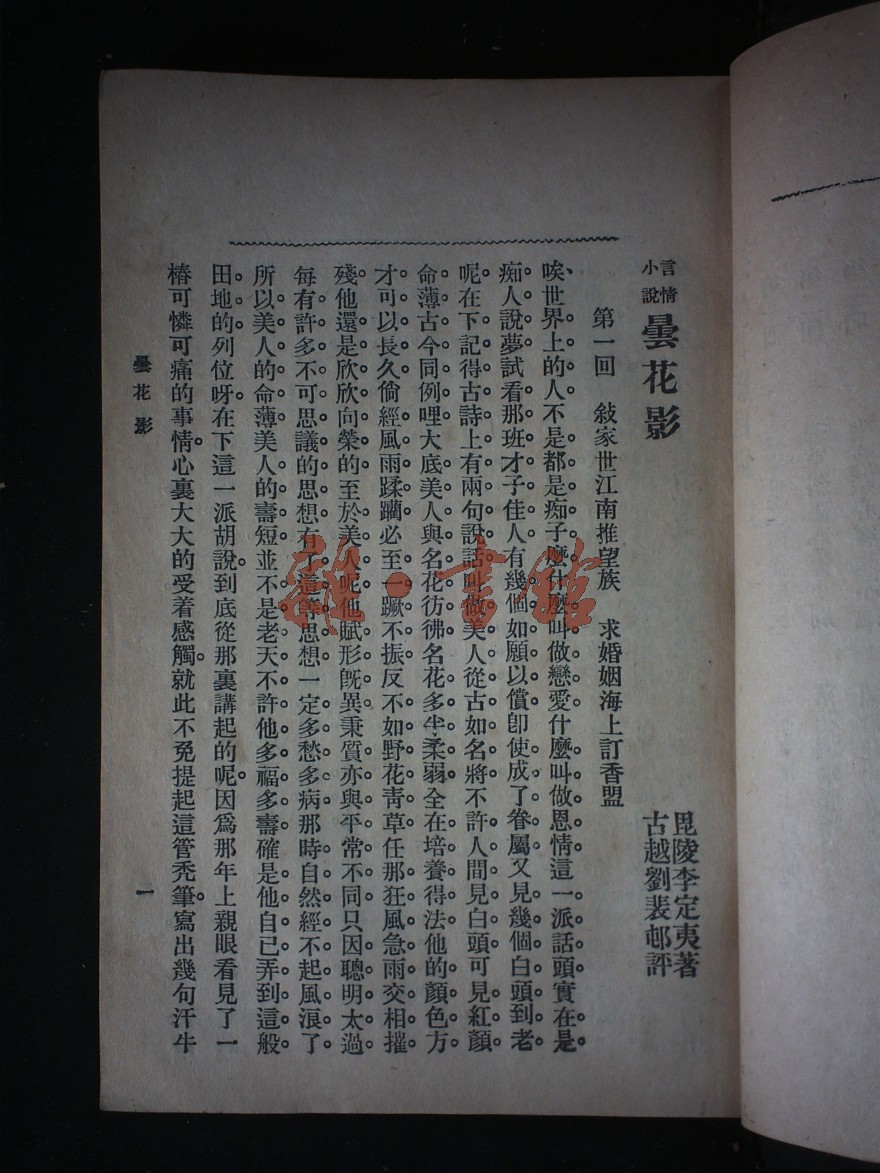 言情小說 曇花影
毘陵李定夷著
古越劉裴邨評
第一回 敍家世江南推望族 求婚姻海上訂香盟
唉、世界上的人不是都是痴子麼什麼叫做戀愛什麼叫做恩情這一派話頭實在是
痴人說夢試看那班才子佳人有幾個如願以償卽使成了眷屬又見幾個白頭到老
呢在下記得古詩上有兩句說話叫做美人從古如名將不許人間見白頭可見紅顏
命薄古今同例哩大底美人與名花彷彿名花多半柔弱全在培養得法他的顏色方
才可以長久倘經風雨蹂躪必至一蹶不振反不如野花靑草任那狂風急雨交相摧
殘他還是欣欣向榮的至於美人呢他賦形旣異秉質亦與平常不同只因聰明太過
每有許多不可思議的思想有了這等思想一定多愁多病那時自然經不起風浪了
所以美人的命薄美人的壽短並不是老天不許他多福多壽確是他自已弄到這般
田地的列位呀在下這一派胡說到底從那裏講起的呢因爲那年上親眼看見了一
樁可憐可痛的事情心裏大大的受着感觸就此不免提起這管禿筆寫出幾句汗牛
曇花影
一
雜·書館